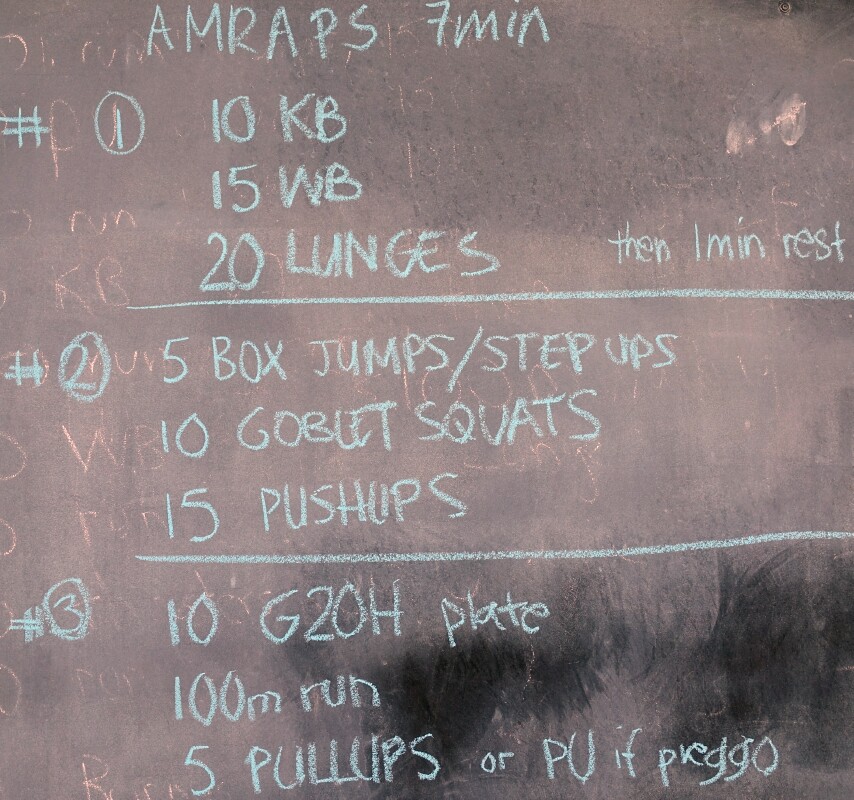 AMRAPS 7min
# 1 10 KB
15 WB
20 LUNGES then 1min rest
# 2 5 BOX JUMPS/STEP UPS
10 GOBLET SQUATS
15 PUSHUPS
#3 10 G2OH plate
100m run
5 PULLUPS or PU if preggo